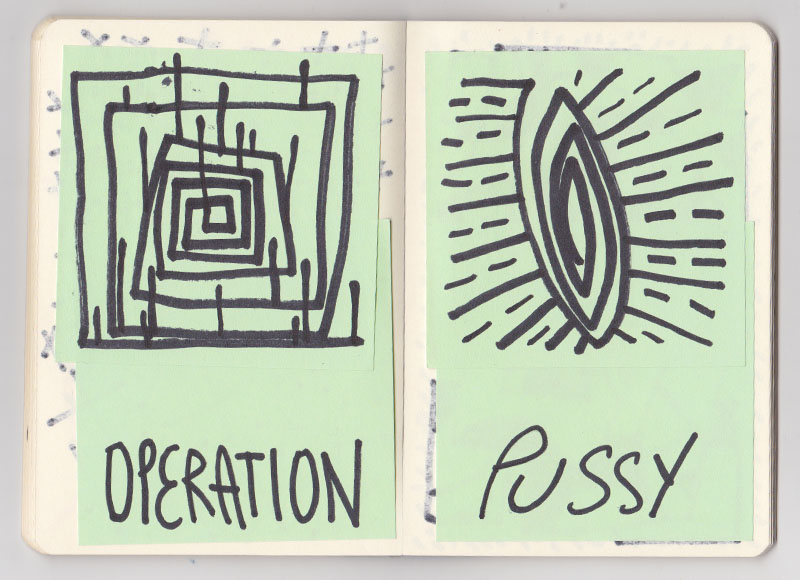 OPERATION
PUSSY